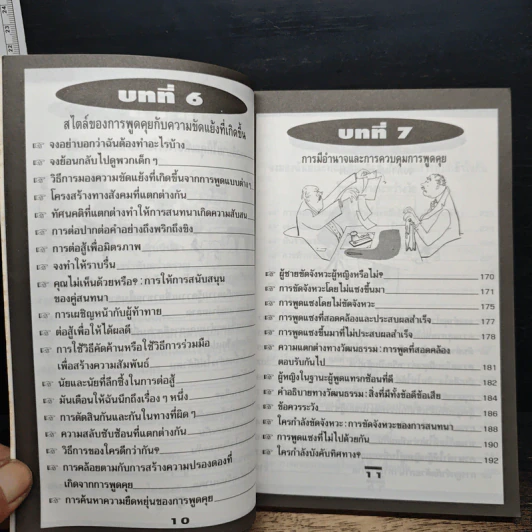 บทที่ 6
สไตล์ของการพูดคุยกับความขัดแย้งที่เกิดขึ้น
จงอย่าบอกว่าฉันต้องทำอะไรบ้าง
จงย้อนกลับไปดูพวกเด็กๆ
วิธีการมองความขัดแย้งที่เกิดขึ้นจากการพูดแบบต่างๆ
โครงสร้างทางสังคมที่แตกต่างกัน
ทัศนคติที่แตกต่างทำให้การสนทนาเกิดความสับสน
การต่อปากต่อคำอย่างถึงพริกถึงขิง
การต่อสู้เพื่อมิตรภาพ
จงทำให้ราบรื่น
คุณไม่เห็นด้วยหรือ? : การให้การสนับสนุน
ของคู่สนทนา
การเผชิญหน้ากับผู้ท้าทาย
ต่อสู้เพื่อให้ได้ผลดี
การใช้วิธีคัดค้านหรือใช้วิธีการร่วมมือ
เพื่อสร้างความสัมพันธ์
นัยและนัยที่ลึกซึ้งในการต่อสู้
มันเตือนให้ฉันนึกถึงเรื่อง ๆ หนึ่ง
การตัดสินกันและกันในทางที่ผิด ๆ
ความสลับซับซ้อนที่แตกต่างกัน
วิธีการของใครดีกว่ากัน?
การคล้อยตามกับการสร้างความปรองดองที่
เกิดจากการพูดคุย
การค้นหาความยืดหยุ่นของการพูดคุย
10
บทที่ 7
การมีอำนาจและการควบคุมการพูดคุย
ผู้ชายขัดจังหวะผู้หญิงหรือไม่? 170
การขัดจังหวะโดยไม่แซงขึ้นมา 171
การพูดแซงโดยไม่ขัดจังหวะ 175
การพูดแซงที่สอดคล้องและประสบผลสำเร็จ 177
การพูดแซงขึ้นมาที่ไม่ประสบผลสำเร็จ 178
ความแตกต่างทางวัฒนธรรม : การพูดที่สอดคล้อง
ตอบรับกันไป 181
ผู้หญิงในฐานะผู้พูดแทรกซ้อนที่ดี 182
คำอธิบายทางวัฒนธรรม : สิ่งที่มีทั้งข้อดีข้อเสีย 184
ข้อควรระวัง 186
ใครกำลังขัดจังหวะ : การขัดจังหวะของการสนทนา 188
การพูดแซงที่ไม่ไปด้วยกัน 190
ใครกำลังบังคับทิศทาง? 192
11